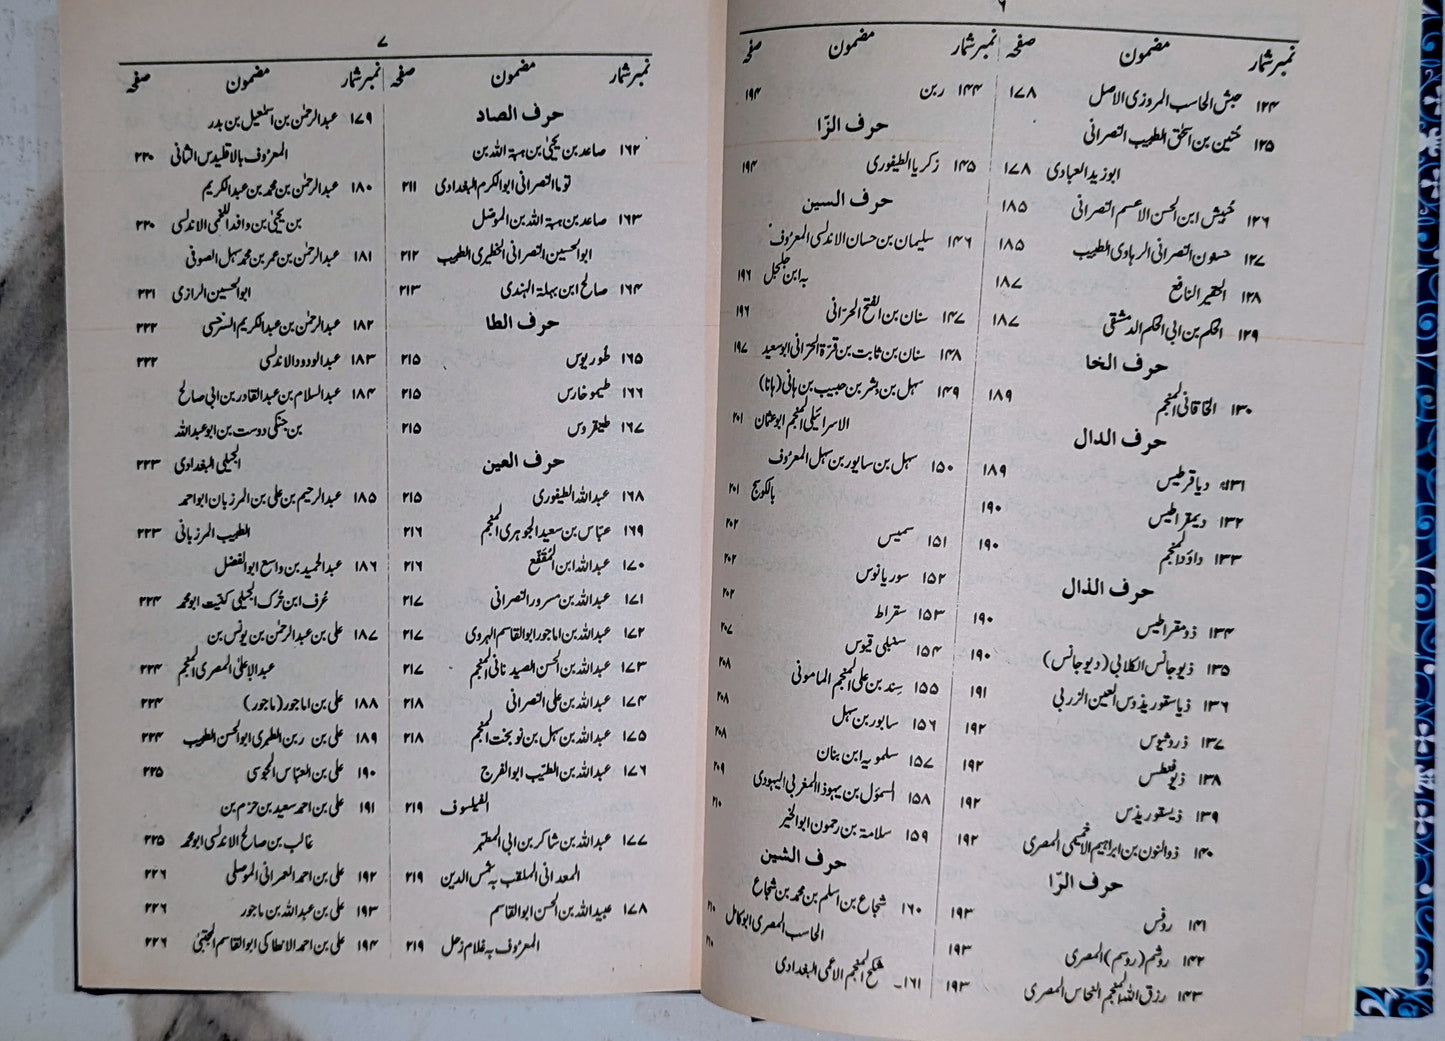 ٦
نمبرشمار مضمون صفحہ
۱۲۴ حبش الحاسب المروزی الاصل ۱۷۸
۱۲۵ حُنین بن اسحٰق الطبیب النصرانی
ابوزید العبادی ۱۷۸
۱۲۶ حُبیش ابن الحسن الاعسم النصرانی ۱۸۵
۱۲۷ حسنون النصرانی الرہاوی الطبیب ۱۸۵
۱۲۸ الحقیر النافع ۱۸۷
۱۲۹ الحکم بن ابی الحکم الدمشقی ۱۸۷
حرف الخا
۱۳۰ الخاقانی المنجم ۱۸۹
حرف الدال
۱۳۱ دیاقرطیس ۱۸۹
۱۳۲ دیمقراطیس ۱۹۰
۱۳۳ داؤد المنجم ۱۹۰
حرف الذال
۱۳۴ ذومقراطیس ۱۹۰
۱۳۵ ذیوجانس الکلابی (دیوجانس) ۱۹۰
۱۳۶ ذیاسقوریذوس العین الزربی ۱۹۱
۱۳۷ ذروثیوس ۱۹۲
۱۳۸ ذیوفنطس ۱۹۲
۱۳۹ ذیسقوریذس ۱۹۲
۱۴۰ ذوالنون بن ابراہیم الاخمیمی المصری ۱۹۲
حرف الرّا
۱۴۱ روفس ۱۹۳
۱۴۲ روشم (روسم) المصری ۱۹۳
۱۴۳ رزق اللہ المنجم النحاس المصری ۱۹۳
نمبرشمار مضمون صفحہ
۱۴۴ ربن ۱۹۴
حرف الزّا
۱۴۵ زکریا الطیفوری ۱۹۴
حرف السین
۱۴۶ سلیمان بن حسان الاندلسی المعرُوف
بہ ابن جلجل ۱۹۶
۱۴۷ سنان بن الفتح الحرّانی ۱۹۶
۱۴۸ سنان بن ثابت بن قرّۃ الحرّانی ابوسعید ۱۹۷
۱۴۹ سہل بن بشر بن حبیب بن ہانی (ہانا)
الاسرائیلی المنجم ابوعثمان ۲۰۱
۱۵۰ سہل بن سابور بن سہل المعرُوف
بالکوسج ۲۰۱
۱۵۱ سمیس ۲۰۲
۱۵۲ سوریانوس ۲۰۲
۱۵۳ سقراط ۲۰۲
۱۵۴ سنبلی قیوس ۲۰۷
۱۵۵ سِند بن علی المنجم المامونی ۲۰۸
۱۵۶ سابور بن سہل ۲۰۸
۱۵۷ سلمویہ ابن بنان ۲۰۸
۱۵۸ السموٴل بن یہوذا المغربی الیہودی ۲۰۹
۱۵۹ سلامۃ بن رحمون ابوالخیر ۲۱۰
حرف الشین
۱۶۰ شجاع بن اسلم بن محمد بن شجاع
الحاسب المصری ابوکامل ۲۱۰
۱۶۱۔ المنجم الاعمی البغدادی ۲۱۰
۷
نمبرشمار مضمون صفحہ
حرف الصاد
۱۶۲ صاعد بن یحیٰی بن ہبۃ اللہ بن
توما النصرانی ابوالکرم البغدادی ۲۱۱
۱۶۳ صاعد بن ہبۃ اللہ بن الموٴمل
ابوالحسین النصرانی الحظیری الطبیب ۲۱۲
۱۶۴ صالح ابن بہلۃ الہندی ۲۱۳
حرف الطا
۱۶۵ طُوریوس ۲۱۵
۱۶۶ طیموخارس ۲۱۵
۱۶۷ طینقروس ۲۱۵
حرف العین
۱۶۸ عبداللہ الطیفوری ۲۱۵
۱۶۹ عبّاس بن سعید الجوہری المنجم ۲۱۶
۱۷۰ عبداللہ ابن المُقَفّع ۲۱۶
۱۷۱ عبداللہ بن مسرور النصرانی ۲۱۷
۱۷۲ عبداللہ بن اماجور ابوالقاسم الہروی ۲۱۷
۱۷۳ عبداللہ بن الحسن الصیدنانی المنجم ۲۱۷
۱۷۴ عبداللہ بن علی النصرانی ۲۱۸
۱۷۵ عبداللہ بن سہل بن نوبخت المنجم ۲۱۸
۱۷۶ عبداللہ بن الطیّب ابوالفرج
الفیلسوف ۲۱۹
۱۷۷ عبداللہ بن شاکر بن ابی المطہّر
المعدانی الملقب بہ شمس الدین ۲۱۹
۱۷۸ عبیداللہ بن الحسن ابوالقاسم
المعرُوف بہ غلام زحل ۲۱۹
نمبرشمار مضمون صفحہ
۱۷۹ عبدالرحمٰن بن اسمٰعیل بن بدر
المعرُوف بالاقلیدس الثانی ۲۲۰
۱۸۰ عبدالرحمٰن بن محمد بن عبدالکریم
بن یحیٰی بن وافد اللخمی الاندلسی ۲۲۰
۱۸۱ عبدالرحمٰن بن عمر بن محمد سہل الصوفی
ابوالحسین الرازی ۲۲۱
۱۸۲ عبدالرحمٰن بن عبدالکریم السرخسی ۲۲۲
۱۸۳ عبدالودود الاندلسی ۲۲۲
۱۸۴ عبدالسلام بن عبدالقادر بن ابی صالح
بن جنگی دوست بن ابوعبداللہ
الجیلی البغدادی ۲۲۳
۱۸۵ عبدالرحیم بن علی بن المرزبان ابواحمد
الطبیب المرزبانی ۲۲۳
۱۸۶ عبدالحمید بن واسع ابوالفضل
عُرف ابن تُرک الجیلی کنیت ابومحمد ۲۲۴
۱۸۷ علی بن عبدالرحمٰن بن یونس بن
عبدالاعلیٰ المصری المنجم ۲۲۴
۱۸۸ علی بن اماجور (ماجور) ۲۲۴
۱۸۹ علی بن ربن الطبری ابوالحسن الطبیب ۲۲۴
۱۹۰ علی بن العبّاس المجوسی ۲۲۵
۱۹۱ علی بن احمد سعید بن حزم بن
غالب بن صالح الاندلسی ابومحمد ۲۲۵
۱۹۲ علی بن احمد العمرانی الموصلی ۲۲۶
۱۹۳ علی بن عبداللہ بن ماجور ۲۲۶
۱۹۴ علی بن احمد الانطاکی ابوالقاسم المجتبیٰ ۲۲۶